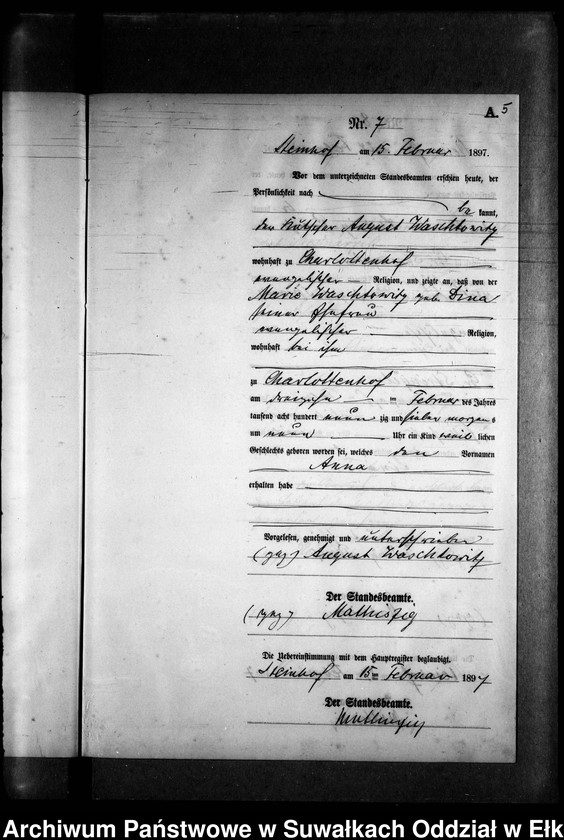 A. 5
Nr. 7
Steinhof am 15. Februar 1897.
Vor dem unterzeichneten Standesbeamten erschien heute, der
Persönlichkeit nach
be kannt,
den Kutscher August Waschkowitz
wohnhaft zu Charlottenhof
evangelischer Religion, und zeigte an, daß von der
Marie Waschkowitz geb. Dina
seiner Ehefrau
evangelischer Religion,
wohnhaft bei ihm
zu Charlottenhof
am dreizehn ten Februar des Jahres
tausend acht hundert neun zig und sieben morgens
um neun Uhr ein Kind weib lichen
Geschlechts geboren worden sei, welches den Vornamen
Anna
erhalten habe
Vorgelesen, genehmigt und unterschrieben
(gez) August Waschkowitz
Der Standesbeamte.
(gez)
Die Uebereinstimmung mit dem Hauptregister beglaubigt.
Steinhof am 15ten Februar 1897
Der Standesbeamte.
Archiwum Państwowe w Suwałkach Oddział w Ełk